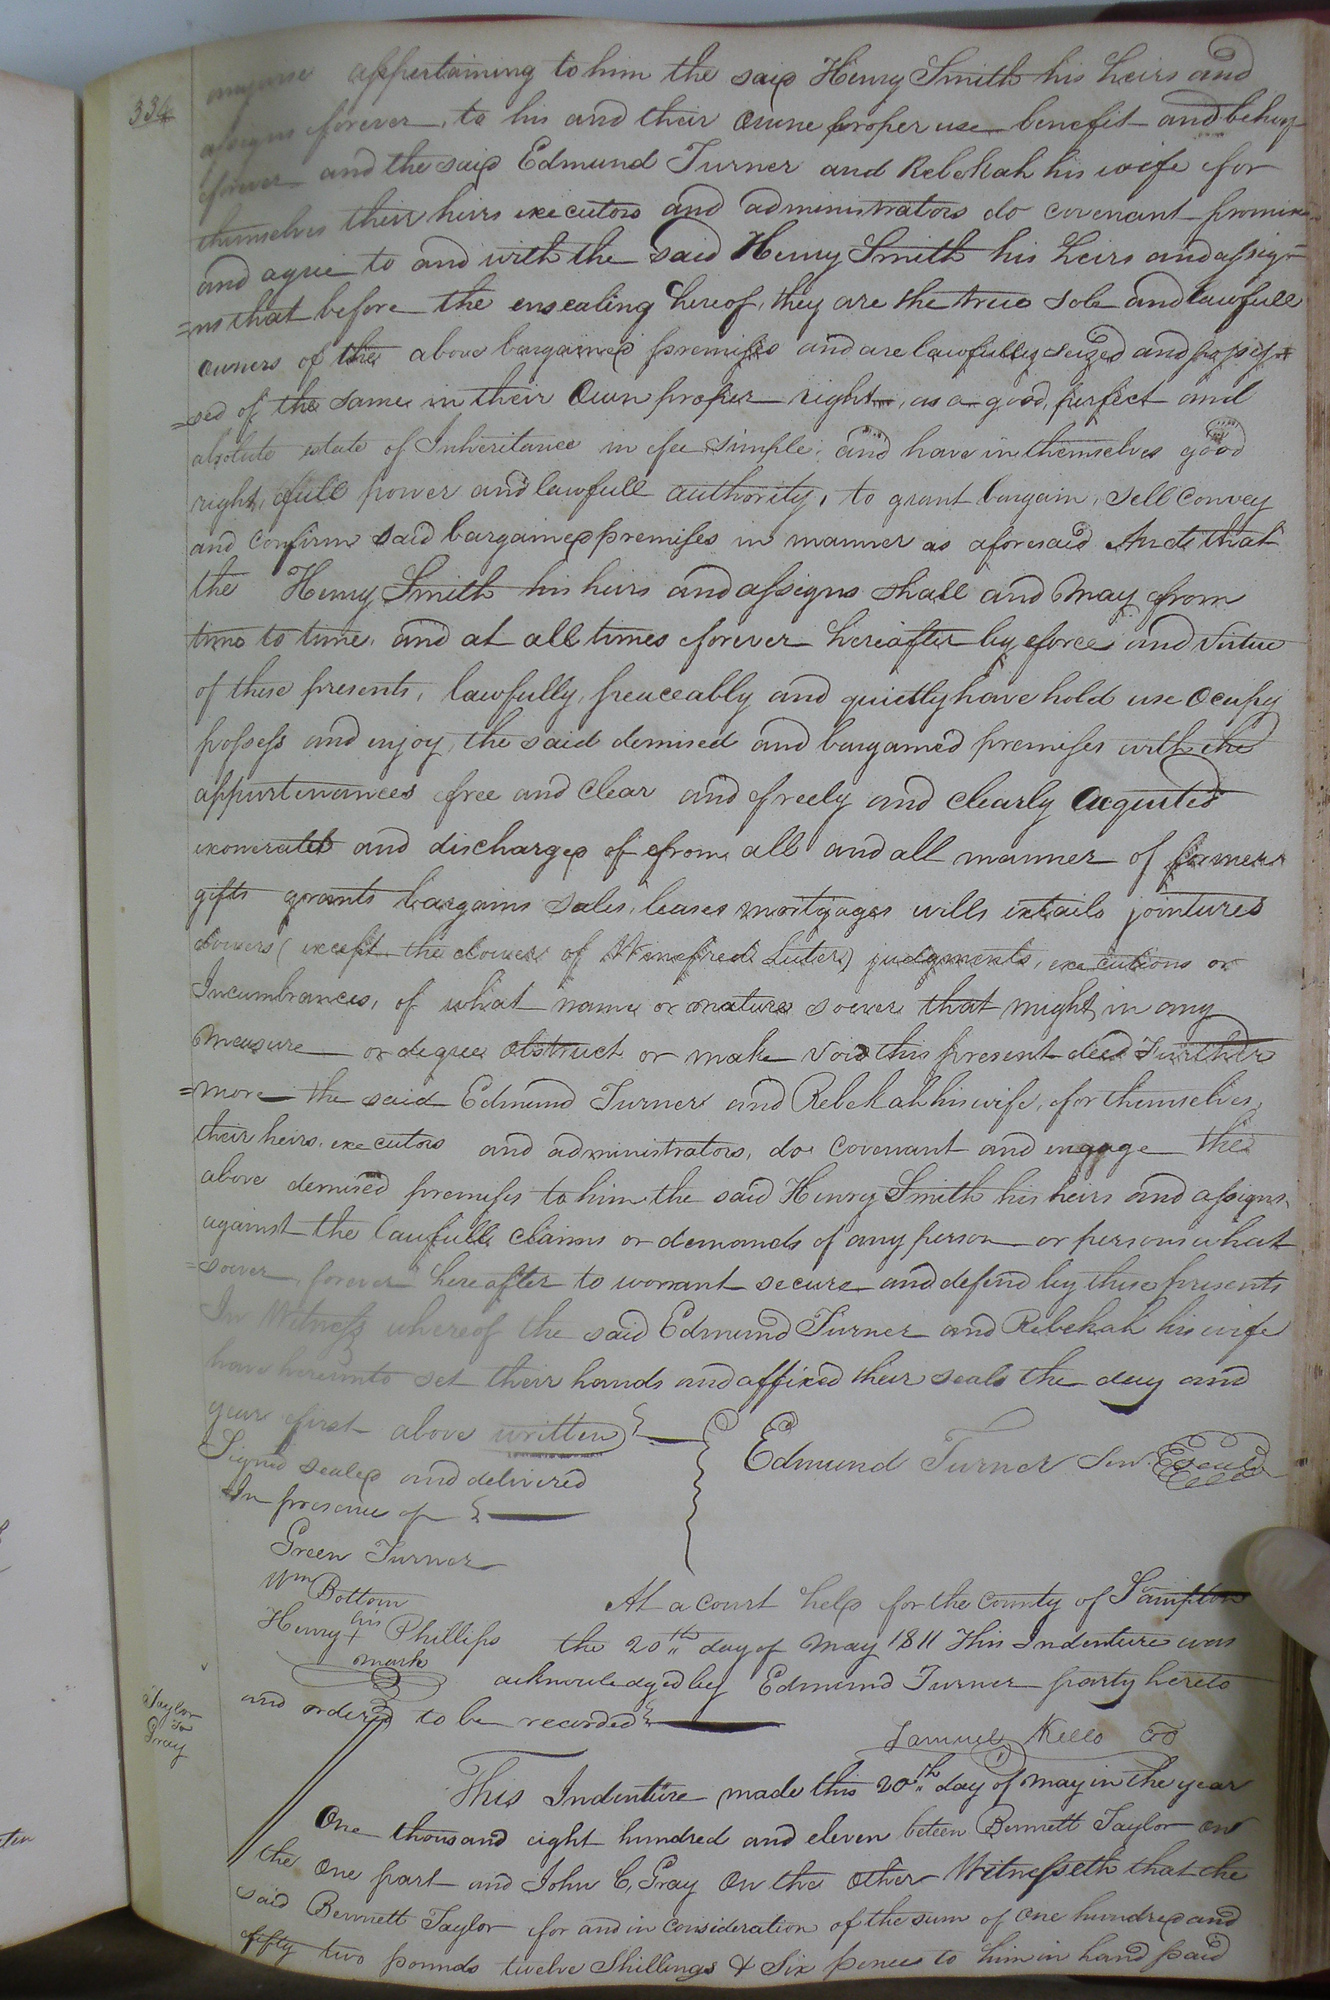 334
anywise appertaining to him the said Henry Smith his heirs and
assigns forever, to his and their owne proper use benefit and behoof
forever and the said Edmund Turner and Rebekah his wife for
themselves their heirs executors and administrators do covenant promise
and agree to and with the said Henry Smith his heirs and assig-
=ns that before the ensealing hereof, they are the true sole and lawfull
owners of the above bargained premises and are lawfully seized and posses
=sed of the same in their Own proper right, as a good, perfect and
absolute estate of Inheritance in fee simple; and have in themselves good
right, full power and lawfull authority, to grant bargain, sell convey
and confirm said bargained premises in manner as aforesaid And that
the Henry Smith his heirs and assigns shall and may from
time to time, and at all times forever hereafter by force and virtue
of these presents, lawfully, peaceably and quietly have hold use Ocupy
possess and injoy, the said demised and bargained premises with the
appurtenances free and clear and freely and clearly Acquited
exonerated and discharged of from all and all manner of former
gifts grants bargains sales, leases mortgages wills extails jointures
dowers (except the dower of Wenefred Luter) judgments, executions or
Incumbrances, of what name or nature soever that might in any
measure or degree obstruct or make void this present deed Further
=more the said Edmund Turner and Rebekah his wife, for themselves,
their heirs, executors and administrators, do covenant and engage the
above demised premises to him the said Henry Smith his heirs and assigns
against the lawfull claims or demands of any person or persons what
=soever, forever hereafter to warrant secure and defend by these presents
In Witness whereof the said Edmund Turner and Rebekah his wife
have hereunto set their hands and affixed their seals the day and
year first above written
Signed sealed and delivered
In presence of
Edmund Turner Senr. Seal
Green Turner
Wm Bottom
Henry his + mark Phillips
At a court held for the county of Sampton
the 20th day of May 1811 This Indenture was
acknowledged by Edmund Turner party hereto
and ordered to be recorded
Samuel Kello CC
Taylor
To
Gray
This Indenture made this 20th day of May in the year
One thousand eight hundred and eleven beteen Bennett Taylor on
the one part and John C, Gray on the other Witnesseth that the
said Bennett Taylor for and in consideration of the sum of one hundred and
fifty two pounds twelve Shillings & Six pences to him in hand paid